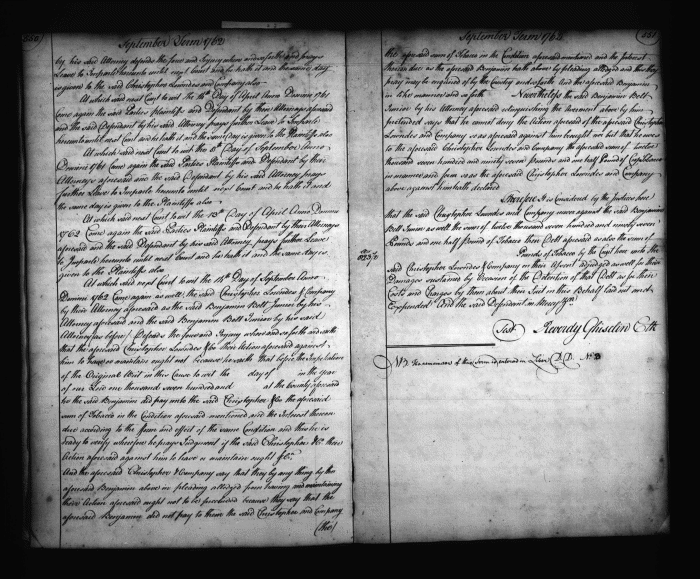 350
September Term 1762
by his said Attorney defends the force and Injury when and so forth and prays
Leave to Imparle hereunto until next Court and he hath it and the same day
is given to the said Christopher Lowndes and Company also
At which said next Court to wit the 14th Day of April Anno Domini 1761
Come again the said Parties Plaintiffs and Defendant by their Attorneys aforesaid
and the said Defendant by his said Attorney prays further Leave to Imparle
hereunto until next Court and he hath it and the same day is given to the Plaintiffs also
At which said next Court to wit the 8th Day of September Anno
Domini 1761 Came again the said Parties Plaintiffs and Defendant by their
Attorneys aforesaid and the said Defendant by his said Attorney prays
further Leave to Imparle hereunto until next Court and he hath it and
the same day is given to the Plaintiffs also
At which said next Court to wit the 13th Day of April Anno Domini
1762 Came again the said Parties Plaintiffs and Defendant by their Attorneys
aforesaid and the said Defendant by his said Attorney prays further Leave
to Imparle hereunto until next Court and he hath it and the same day is
given to the Plaintiffs also
At which said next Court to wit the 14th Day of September Anno
Domini 1762 Came again as well the said Christopher Lowndes & Company
by their Attorney aforesaid as the said Benjamin Belt Junior by his
Attorney aforesaid and the said Benjamin Belt Junior by his said
Attorney as before Defends the force and Injury when and so forth and saith
that the aforesaid Christopher Lowndes & Co their Action aforesaid against
him to have or maintain ought not because he saith that before the Impetration
of the Original Writ in this Cause to wit the day of in the year
of our Lord one thousand seven hundred and at the County aforesaid
he the said Benjamin did pay unto the said Christopher & Co the aforesaid
sum of Tobacco in the Condition aforesaid mentioned and the Interest thereon
due according to the form and effect of the same Condition and this he is
ready to verify wherefore he prays Judgment if the said Christopher & Co their
Action aforesaid against him to have or maintain ought &c.
And the aforesaid Christopher & Company say that they by any thing by the
aforesaid Benjamin above in pleading alledged from having and maintaining
their Action aforesaid ought not to be precluded because they say that the
aforesaid Benjamin did not pay to them the said Christopher and Company
(the)
September Term 1762
the aforesaid sum of Tobacco in the Condition aforesaid mentioned and the Interest
thereon due as the aforesaid Benjamin hath above by pleading alledged and this they
pray may be enquired of by the Country and so forth And the aforesaid Benjamin
in like manner and so forth Nevertheless the said Benjamin Belt
Junior by his Attorney aforesaid relinquishing the averment above by him
pretended says that he cannot deny the Action aforesaid of the aforesaid Christopher
Lowndes and Company so as aforesaid against him brought nor but that he owes
to the aforesaid Christopher Lowndes and Company the aforesaid sum of twelve
thousand seven hundred and ninety seven pounds and one half Pound of Crop Tobacco
in manner and form as the aforesaid Christopher Lowndes and Company
above against him hath declared
Therefore It is Considered by the Justices here
that the said Christopher Lowndes and Company recover against the said Benjamin
Belt Junior as well the sum of twelve thousand seven hundred and ninety seven
Pounds and one half Pound of Tobacco their Debt aforesaid as also the sum of
Pounds of Tobacco by the Court here unto the
said Christopher Lowndes & Company on their Assent adjudged as well for their
Damages sustained by Occasion of the Detention of that Debt as for their
Costs and Charges by them about their Suit in this Behalf laid out and
Expended And the said Defendant in Mercy &ca
Test Reverdy Ghiselin Clk
The remainder of this Term is entered in Liber D.D. No. 3